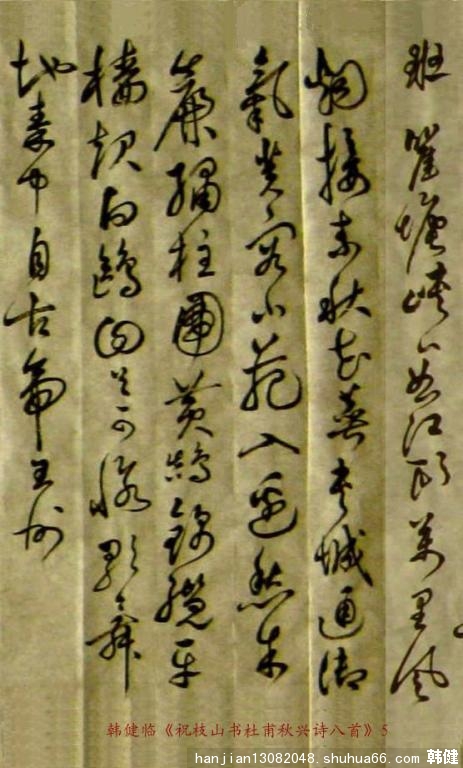 班 瞿塘峽口曲江頭萬里風
烟接素秋花萼夾城通御
氣芙蓉小苑入邊愁朱
簾繡柱圍黃鵠錦纜牙
檣起白鷗回首可憐歌舞
地秦中自古帝王州
韩健临《祝枝山书杜甫秋兴诗八首》5
hanjian13082048.shuhua66.com 韩健